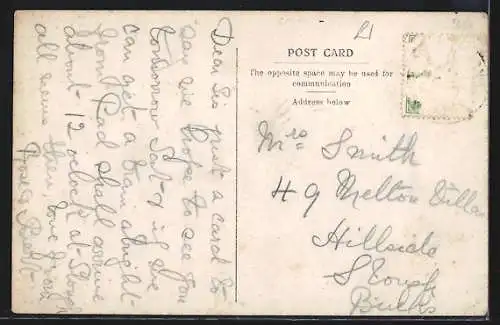 Dear Sis just a card to
say we hope to see you
tomorrow Sat if we
can get a train alright
from Pad shall arrive
about 12 oclock at Slough
all news then, love from
Rose & Bert
POST CARD
The opposite space may be used for
communication
Address below
Mrs Smith
49 Melton Villas
Hillside
Slough
Bucks